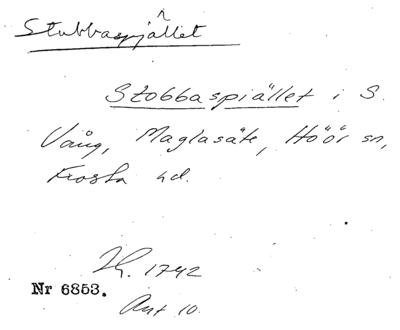 Stubbaspjället
Stobbaspiället i S.
Vång, Maglasäte, Höör sn,
Frosta hd.
LH. 1742
Nr 6853.
Akt 10.